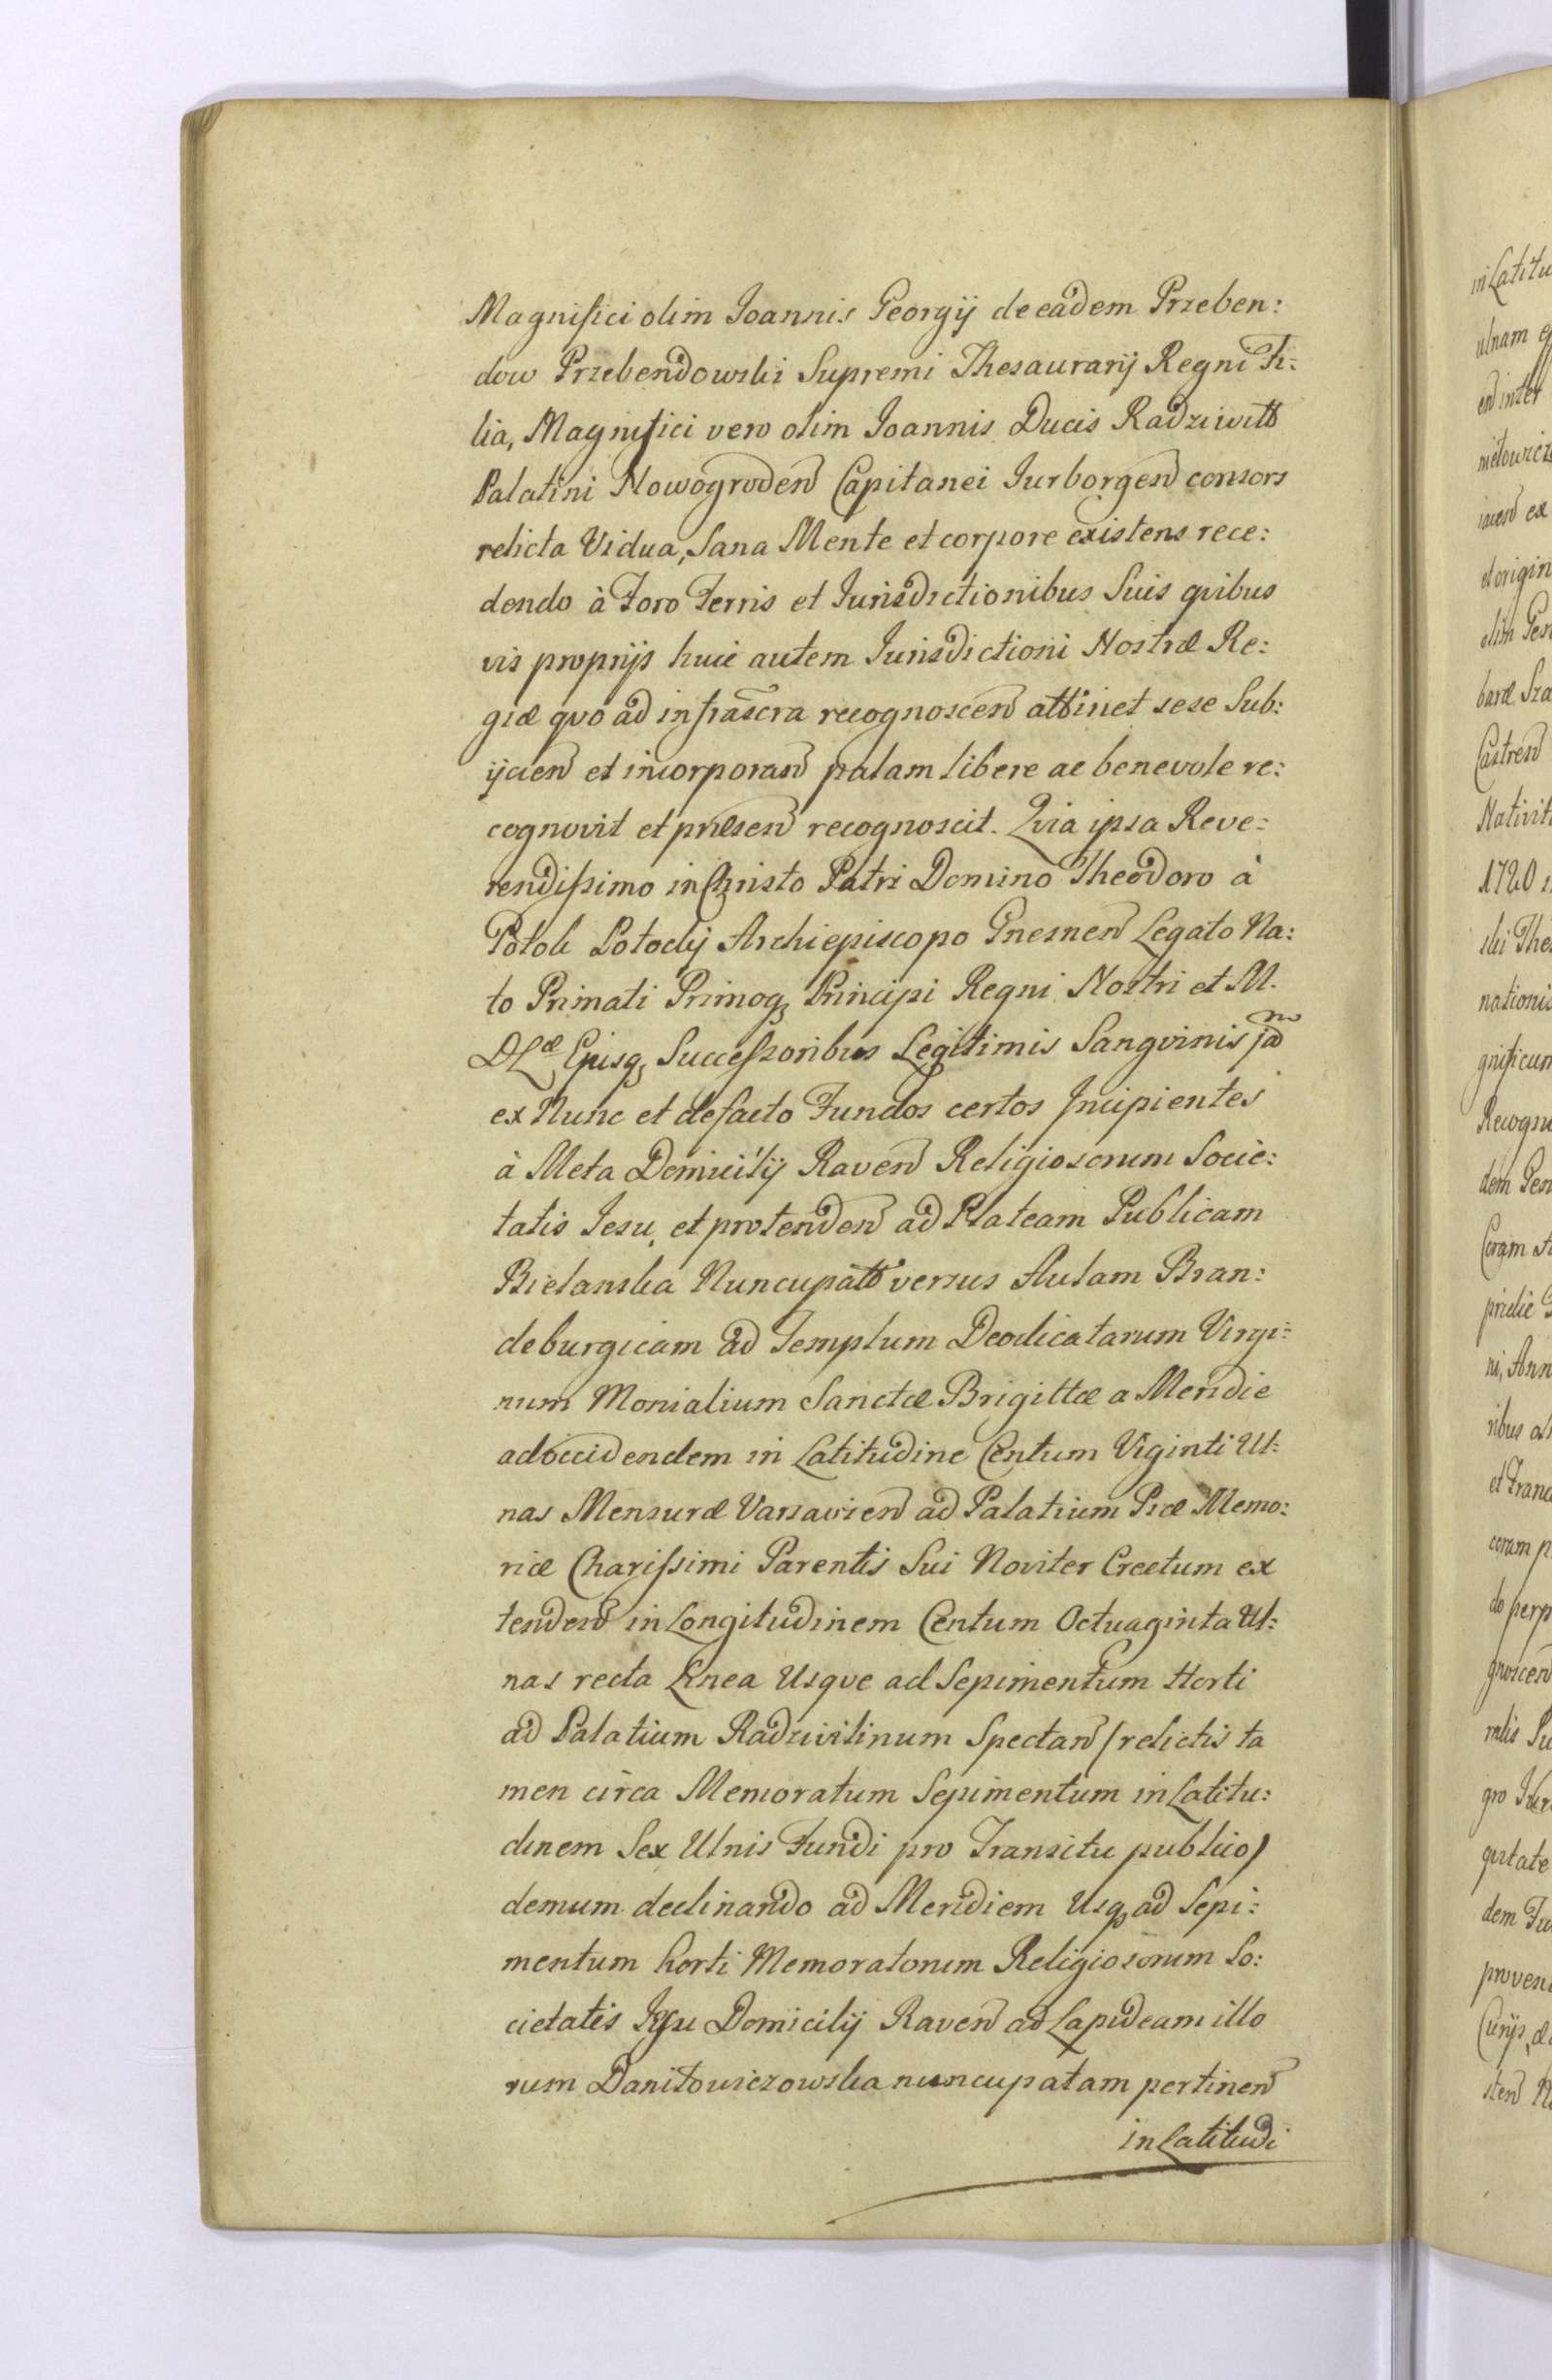 Magnifici olim Joannis Georgij de eadem Przeben:
dow Przebendowski Supremi Thesaurarij Regni Fi:
lia, Magnifici vero olim Joannis Ducis Radziwiłł
Palatini Nowogroden Capitanei Jurborgen consors
relicta Vidua, Sana Mente et corpore existens rece:
dendo à Foro Terris et Jurisdictionibus Suis quibus
vis proprijs huic autem Jurisdictioni Nostræ Re:
giæ quo ad infrascra recognoscen attinet sese Sub:
ijcien et incorporan palam libere ac benevole re:
cognovit et præsen recognoscit. Quia ipsa Reve:
rendissimo in Christo Patri Domino Theodoro à
Potok Potocky Archiepiscopo Gnesnen Legato Na:
to Primati Primoq Principi Regni Nostri et M.
D Læ Ejusq Successoribus Legitimis Sangvinis jam
ex Nunc et defacto Fundos certos Jncipientes
à Meta Domicilij Raven Religiosorum Socie:
tatis Jesu, et protenden ad Plateam Publicam
Bielanska Nuncupatt versus Aulam Bran:
deburgicam ad Templum Deodicatarum Virgi:
num Monialium Sanctæ Brigittæ a Meridie
ad occidendem in Latitudine Centum Viginti Ul:
nas Mensuræ Varsavien ad Palatium Piæ Memo:
riæ Charissimi Parentis Sui Noviter Erectum ex
tenden in Longitudinem Centum Octuaginta Ul:
nas recta Linea Usque ad Sepimentum Horti
ad Palatium Radzivilinum Spectan /relictis ta
men circa Memoratum Sepimentum in Latitu:
dinem Sex Ulnis Fundi pro Transitu publico/
demum declinando ad Meridiem Usq ad Sepi:
mentum horti Memoratorum Religiosorum So:
cietatis Jesu Domicilij Raven ad Lapideam illo
rum Daniłowiczowska nuncupatam pertinen
in Latitudi
in Latitu
ulnam
inter
ex
et origin
olim Gen
baræ
Castren
Nativit
1720
nationis
gnificum
Recogn
dem Gen
Coram
pridie
ni, Ann
ribus
et Franc
coram p
do perp
gnoscen
gro Jur
dem Fu
proven